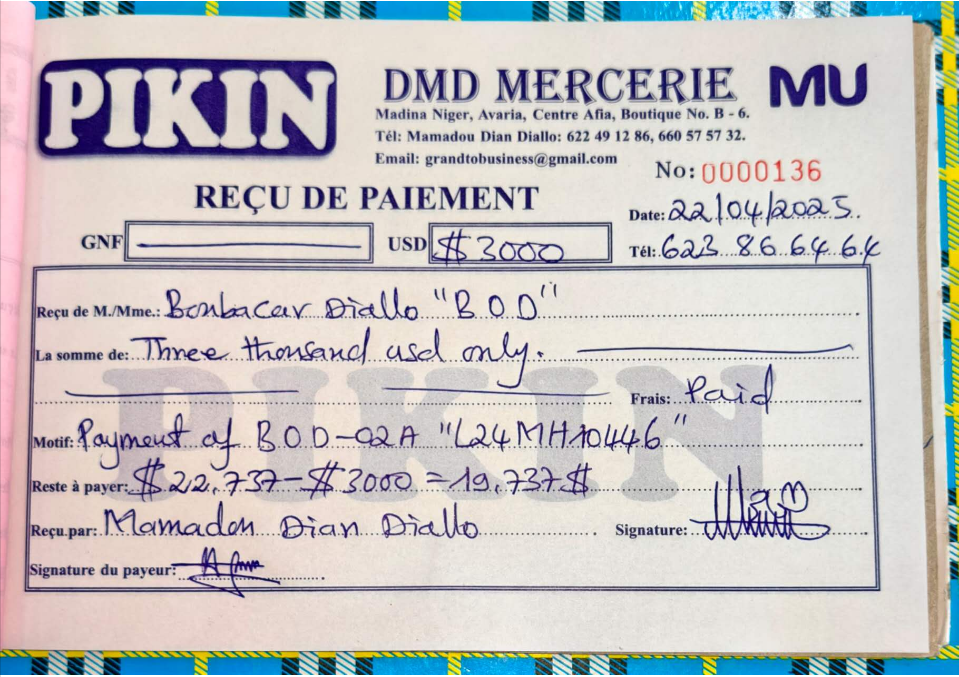 PIKIN
DMD MERCERIE
MU
Madina Niger, Avaria, Centre Afia, Boutique No. B - 6.
Tél: Mamadou Dian Diallo: 622 49 12 86, 660 57 57 32.
Email: grandtobusiness@gmail.com
No: 0000136
REÇU DE PAIEMENT
Date: 22/04/2025.
GNF
USD $3000
Tél: 623 86 64 64
Reçu de M./Mme.: Boubacar Diallo "B O D"
La somme de: Three thousand usd only.
Frais: Paid
PIKIN
Motif: Payment of B.O.D-02A "L24MH10446"
Reste à payer: $22,737-$3000 = 19,737$
Reçu par: Mamadou Dian Diallo
Signature:
Signature du payeur: